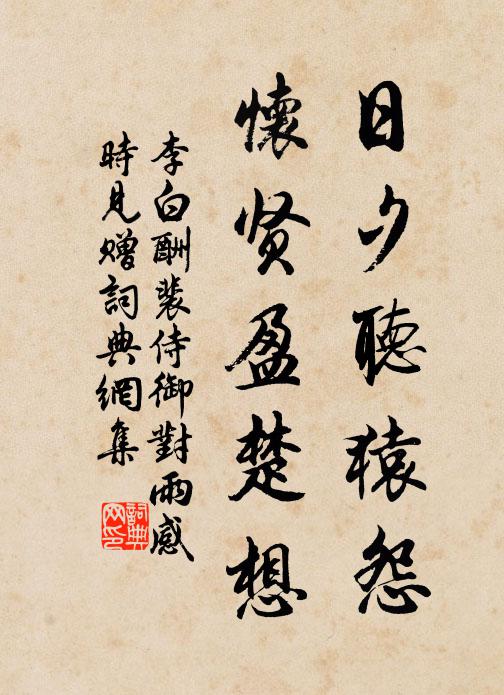 日夕聽猿怨
懷贤盈楚想
李白酬裴侍御對雨感
時見贈詞典網集
詞典
网印